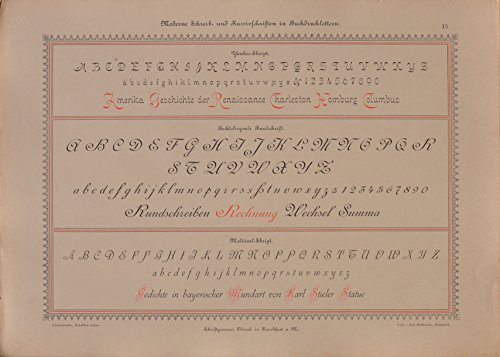 Moderne Schreib- und Kursivschriften in Buchdrucklettern.
15
A B C D E F G H I J K L M N O P Q R S T U V W X Y Z
a b c d e f g h i j k l m n o p q r s t u v w x y z & 1 2 3 4 5 6 7 8 9 0
Amerika Geschichte der Renaissance Charleston Homburg Columbus
Rechtsliegende Rundschrift.
A B C D E F G H I J K L M N O P Q R
S T U V W X Y Z
a b c d e f g h i j k l m n o p q r s t u v w x y z 1 2 3 4 5 6 7 8 9 0
Rundschreiben Rechnung Wechsel Summa
Mediäval-Skript.
A B C D E F G H I J K L M N O P Q R S T U V W X Y Z
a b c d e f g h i j k l m n o p q r s t u v w x y z
Gedichte in bayerischer Mundart von Karl Stieler Statue
Schriftgiesserei Flinsch in Frankfurt a. M.